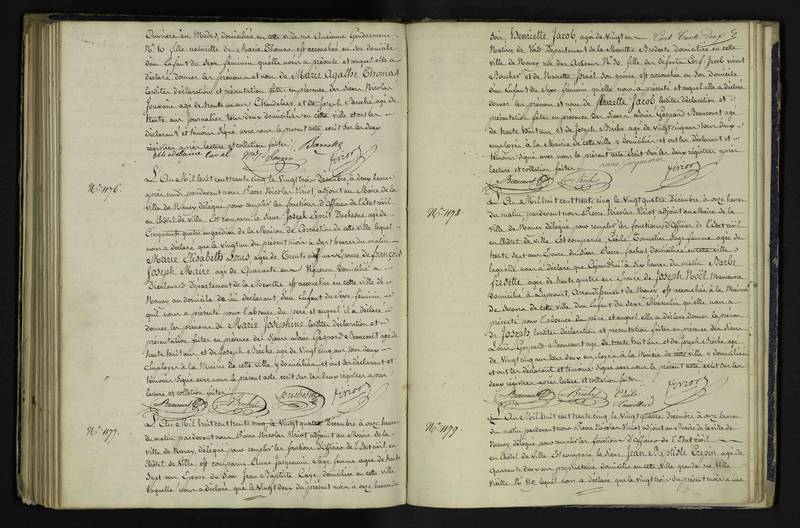 Ouvrière en Modes, domiciliée en cette ville rue Ancienne Gendarmerie
N.º 10 fille naturelle de Marie Thomas est accouchée en son domicile
d'un Enfant du Sexe féminin qu'elle nous a présenté et auquel elle a
déclaré donner les prénoms et nom de Marie Agathe Thomas
lesdites déclaration et présentation faites en présence des Sieurs Nicolas
âgé de trente un ans Chandelier et de Joseph âgé de
trente ans Journalier tous deux domiciliés en cette ville et ont les
déclarant et témoins Signé avec nous le présent acte écrit sur les deux
registres après lecture et collation faites
N.º 1176.
L'An Mil huit cent trente cinq le Vingt trois Décembre à deux heures
après midi pardevant nous Pierre Nicolas adjoint au Maire de la
Ville de Nancy délégué pour remplir les fonctions d'Officier de l'Etat civil
en l'hôtel de Ville Est comparu le Sieur Joseph Duchesne âgé de
Cinquante quatre ans gardien de la Maison de de cette ville lequel
nous a déclaré que le vingt un du présent mois à Sept heures du matin
Marie Elisabeth Louis âgée de Trente ans Epouse de François
Joseph âgé de Quarante ans Vigneron domicilié à
Dieulouard département de la Meurthe est accouchée en cette ville de
Nancy au domicile de lui déclarant, d'un Enfant du Sexe féminin
qu'il nous a présenté pour l'absence du père et auquel il a déclaré
donner les prénoms de Marie Joséphine lesdites déclaration et
présentation faites en présence des Sieurs Louis Gaspard Beaucourt âgé de
trente huit ans et de Joseph Briché âgé de vingt cinq ans tous deux
Employés à la Mairie de cette ville y domiciliés et ont les déclarant et
témoins Signé avec nous le présent acte écrit sur les deux registres après
lecture et collation faites
Beaucourt Duchesne
N.º 1177.
L'An Mil huit cent trente cinq le Vingt quatre Décembre à onze heures
du matin pardevant nous Pierre Nicolas adjoint au Maire de la
ville de Nancy, délégué pour remplir les fonctions d'Officier de l'Etat civil, en
l'hôtel de Ville est comparue Anne Jacquemin Sage femme âgée de trente
Sept ans Epouse du Sieur Jean Baptiste domiciliée en cette ville
laquelle nous a déclaré que le Vingt deux du présent mois à onze heures du
Soir Henriette Jacob, âgée de Vingt ans
Native de Void Département de la Meuse Brodeuse domiciliée en cette
ville de Nancy rue des N.º 30 fille des défunts Cerf Jacob vivant
Boucher et de Israël Son épouse est accouchée en Son domicile
d'un Enfant du Sexe féminin qu'elle nous a présenté et auquel elle a déclaré
donner les prénoms et nom de Jacob lesdites déclaration et
présentation faites en présence des Sieurs Louis Gaspard Beaucourt âgé
de trente huit ans et de Joseph Briché âgé de vingt cinq ans tous deux
employés à la Mairie de cette ville y domiciliés et ont les déclarant et
témoins Signé avec nous le présent acte écrit sur les deux registres après
lecture et collation faites
Beaucourt Jacquemin
N.º 1178.
L'An Mil huit cent trente cinq le Vingt quatre Décembre à onze heures
du matin pardevant nous Pierre Nicolas adjoint au Maire de la
Ville de Nancy délégué pour remplir les fonctions d'Officier de l'Etat civil
en l'hôtel de Ville Est comparue Cécile Sage femme âgée de
trente Sept ans Epouse du Sieur Pierre domiciliée en cette ville
laquelle nous a déclaré que Cejourd'hui à heures du matin Barbe
âgée de trente quatre ans Epouse de Joseph Noël Manoeuvre
domicilié à Arrondissement de Nancy est accouchée à la Maison
de Secours de cette ville d'un Enfant du Sexe Masculin qu'elle nous a
présenté pour l'absence du père et auquel elle a déclaré donner le prénom
de Joseph lesdites déclaration et présentation faites en présence des Sieurs
Louis Gaspard Beaucourt âgé de trente huit ans et de Joseph Briché âgé
de Vingt cinq ans tous deux employés à la Mairie de cette ville y domiciliés
et ont les déclarant et témoins Signé avec nous le présent acte écrit sur les
deux registres après lecture et collation faites
Beaucourt Cécile
N.º 1179.
L'An Mil huit cent trente cinq le Vingt quatre Décembre à onze heures
du matin pardevant nous Pierre Nicolas adjoint au Maire de la ville de
Nancy, délégué pour remplir les fonctions d'Officier de l'Etat civil
en l'hôtel de Ville Est comparu le Sieur Jean Baptiste âgé de
Quarante deux ans propriétaire domicilié en cette ville grande rue Ville
Vieille N.º lequel nous a déclaré que le vingt trois du présent mois à une